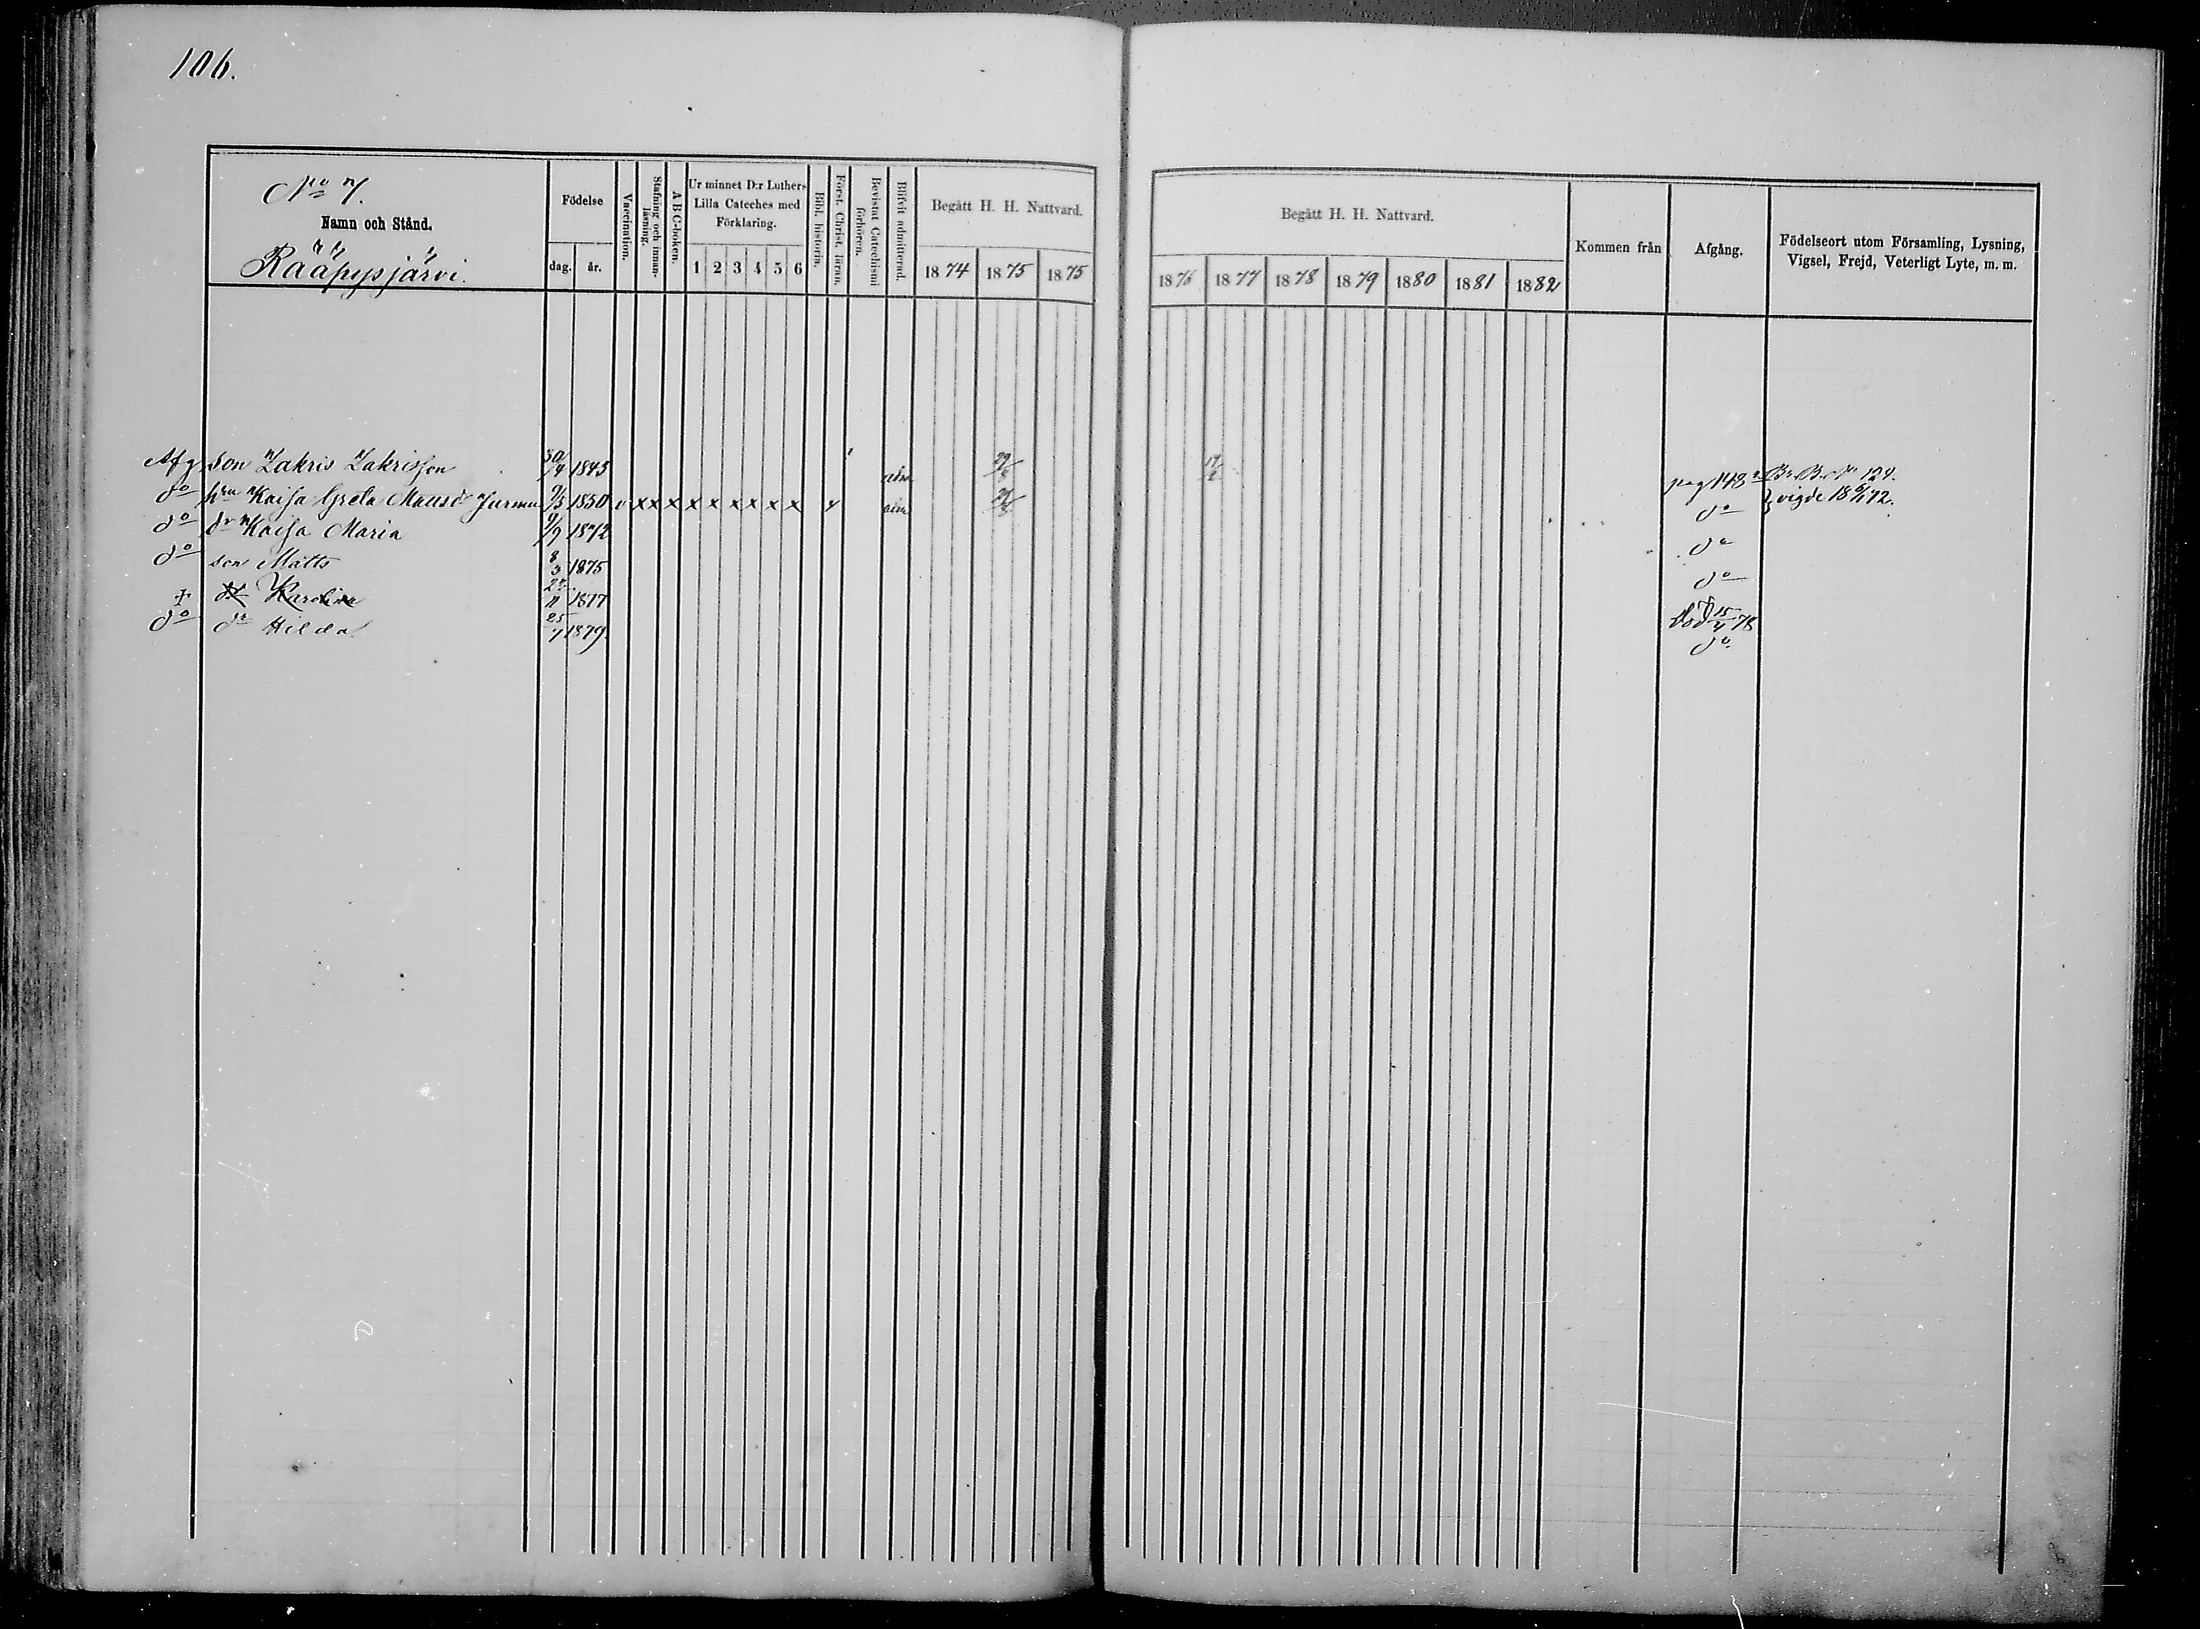 106.
No 7.
Namn och Stånd.
Rääpysjärvi.
Födelse
dag. år.
Vaccination.
Stafning och innanläsning.
A B C-boken.
Ur minnet D:r Luthers Lilla Cateches med Förklaring.
1 2 3 4 5 6
Bibl. historia.
Först. Christ. läran.
Bevistat Catechismi förhören.
Blifvit admitterad.
Begått H. H. Nattvard.
1874 1875 1875
Begått H. H. Nattvard.
1876 1877 1878 1879 1880 1881 1882
Kommen från
Afgång.
Födelseort utom Församling, Lysning, Vigsel, Frejd, Veterligt Lyte, m. m.
Afg. son Zakris Zakrisson 30/4 1843 pag 148 Br. B. No 124.
do hu Kaisa Greta Mausd Jurmu 9/3 1850 v x x x x x x x x x do vigde 18 6/1 72.
do dr Kaisa Maria 9/9 1872 do
do son Matts 8/3 1875 do
† dr Karolina 1877 död 15/4 78
do dr Hilda 25/7 1879 do